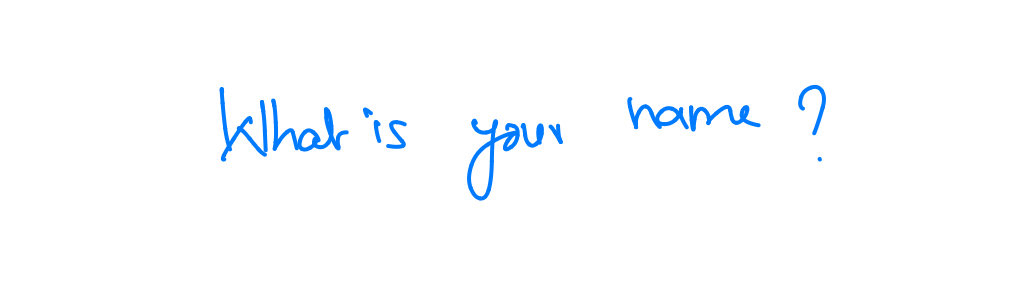 What is your name ?